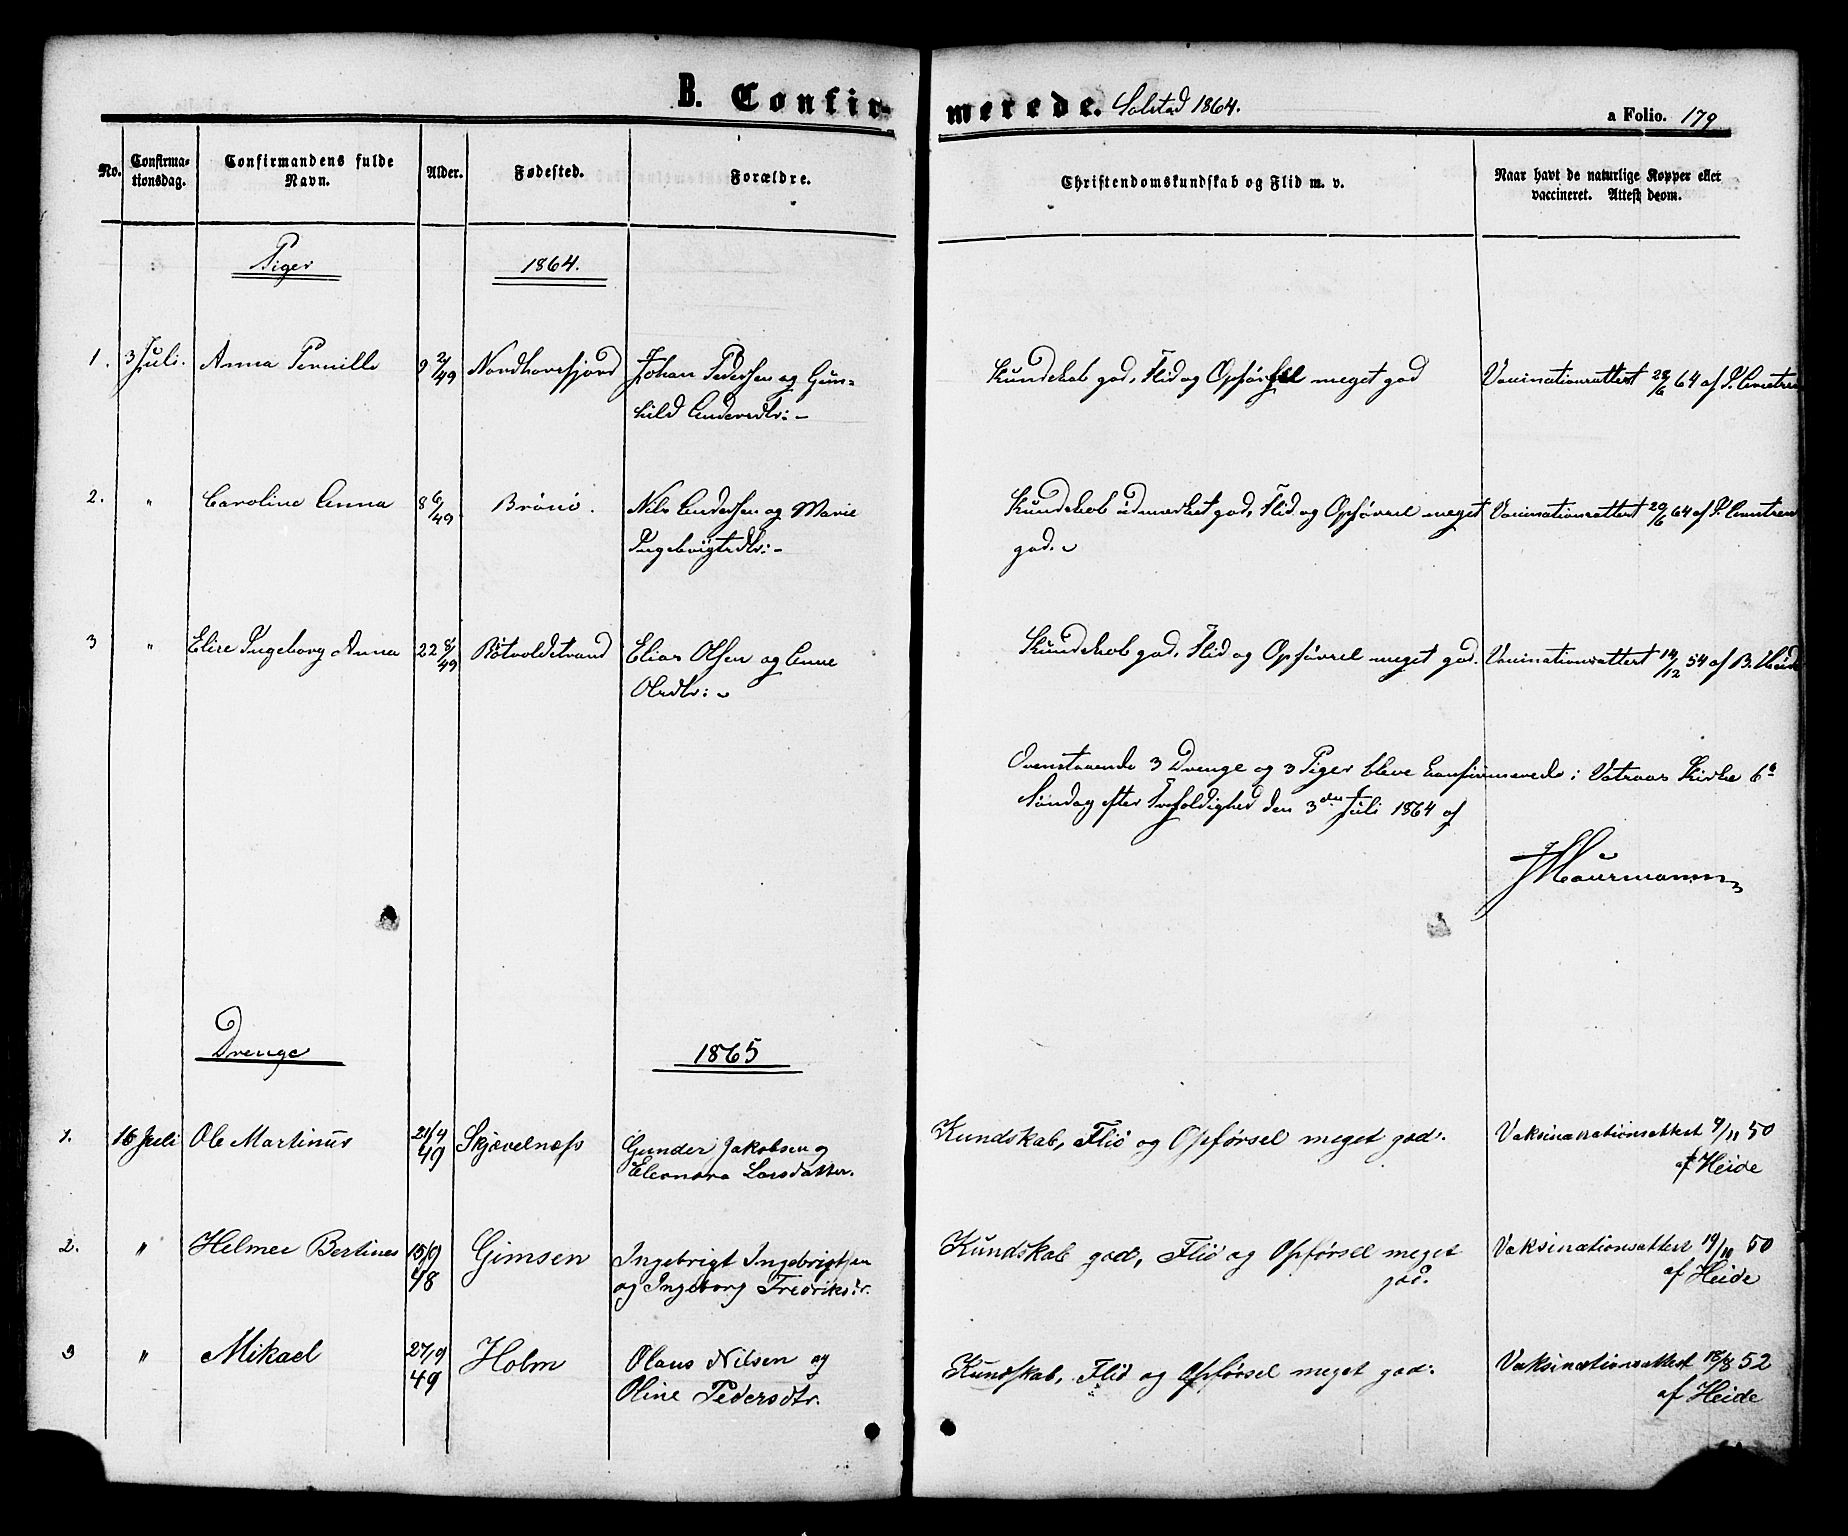 B. Confirmerede. Solstad 1864. a Folio. 179
No. Confirmationsdag. Confirmandens fulde Navn. Alder. Fødested. Forældre. Christendomskundskab og Flid m. v. Naar havt de naturlige Kopper eller vaccineret. Attest deom.
Piger 1864.
1. 3 Juli. Anna Pernille 9 2/49 Nordhorsfjord Johan Pedersen og Gun- Kundskab god, Flid og Opførsel meget god Vaccinationsattest 28/6 64 af
hild Andersdtr:
2. " Caroline Anna 8 6/49 Brönö. Nils Andersen og Marie Kundskab udmerket god, Flid og Opförsel meget Vaccinationsattest 20/6 64 af
Ingebrigtsdtr: god.
3 " Elise Ingeborg Anna 22 8/49 Røtvoldstrand Elias Olsen og Anne Kundskab god, Flid og Opförsel meget god. Vaccinationsattest 14/12 54 af B. Heide
Olsdtr:
Ovenstaaende 3 Drenge og 3 Piger bleve Confirmerede i Vatsaas Kirke 6te
Söndag efter Trefoldighed den 3die Juli 1864 af
Maurmann
Drenge 1865
1. 16 Juli Ole Martinus 21/4 49 Skjævelnæss Gunder Jakobsen og Kundskab, Flid og Opførsel meget god. Vaksinationsattest 9/11 50
Eleonora Larsdatter. af Heide
2. " Helmer Bertines 15/9 48 Gimsen Ingebrigt Ingebrigtsen Kundskab god, Flid og Opførsel meget Vaksinationsattest 19/11 50
og Ingeborg Fredriksdr. god. af Heide
3 " Mikael 27/9 49 Holm Olaus Nilsen og Kundskab, Flid og Opførsel meget god. Vaksinationsattest 18/8 52
Oline Pedersdtr. af Heide